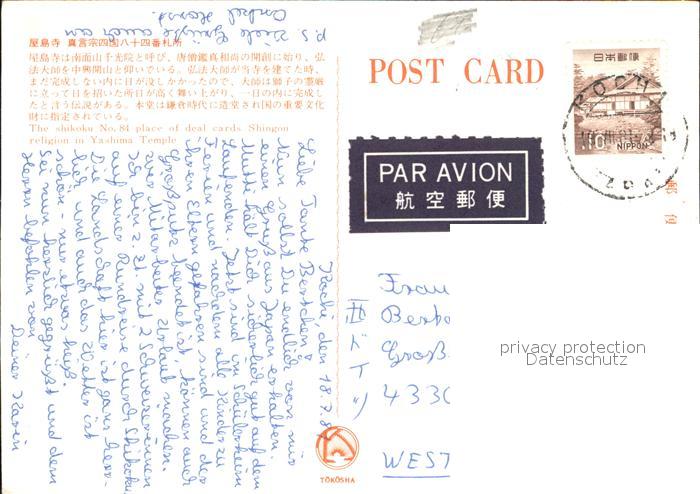 屋島寺 真言宗四国八十四番札所
屋島寺は南面山千光院と呼び、唐僧鑑真和尚の開創に始り、弘
法大師を中興開山と仰いでいる。弘法大師が当寺を建てた時、
まだ完成しない内に日が没しかかったので、大師は獅子の霊厳
に立って日を招いた所日が高く舞い上がり、一日の内に完成し
たと言う伝説がある。本堂は鎌倉時代に造堂され国の重要文化
財に指定されている。
The shikoku No.84 place of deal cards Shingon
religion in Yashima Temple
POST CARD
日本郵便
10 NIPPON
KOCHI
PAR AVION
航空郵便
Kochi, den 18.7.8
Liebe Tante Bertchen!
Nun sollst Du endlich von mir
einen Gruß aus Japan erhalten.
Mutti hält Dich sicherlich gut auf dem
Laufenden. Jetzt sind in Schülerheim
Ferien und nachdem alle Kinder zu
ihren Eltern gefahren sind und der
Großputz beendet ist, können auch
wir Mitarbeiter Urlaub machen.
Ich bin z. Zt. mit 2 Schweizerinnen
auf einer Rundreise durch Shikoku.
Die Landschaft hier ist ganz herr-
lich und auch das Wetter ist
schön - nur etwas heiß
Sei nun herzlich gegrüßt und dem
Herrn befohlen von
Deiner Karin
p.s Viele Grüße auch an
Onkel Horst.
Frau
西ドイツ
Berta
Groß
4330
WEST
TŌKŌSHA
privacy protection
Datenschutz